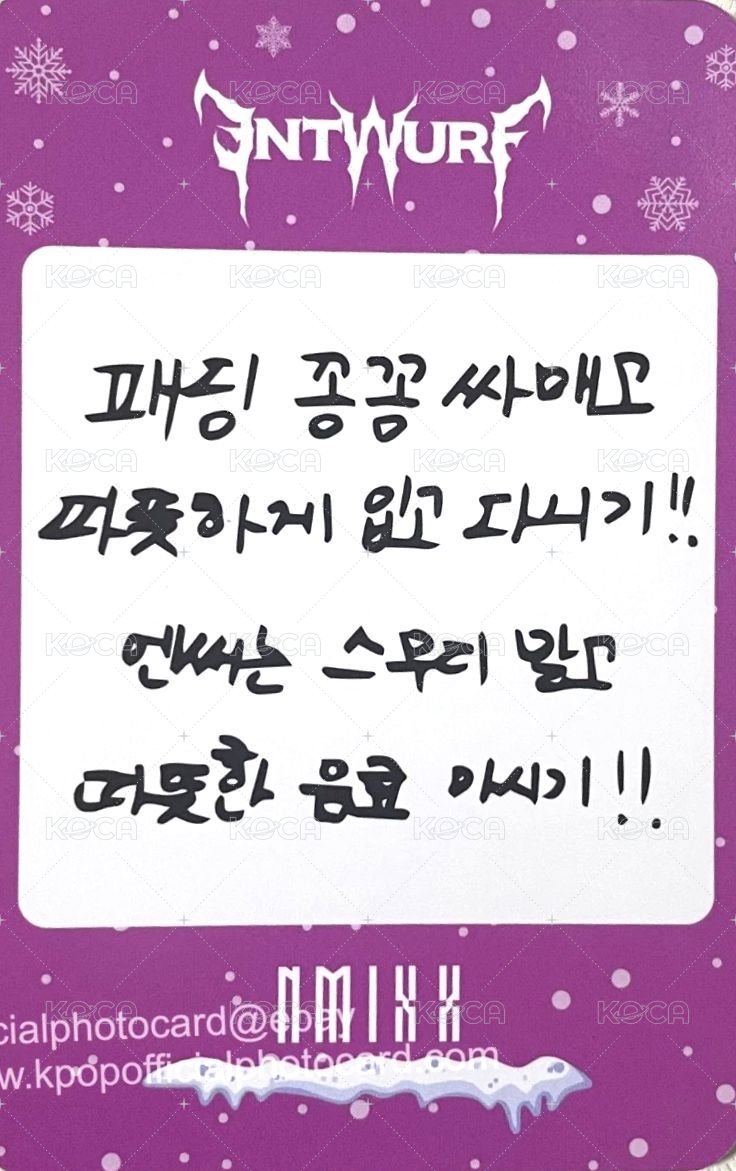 ENTWURF
패딩 꽁꽁 싸매고
따뜻하게 입고 다니기!!
엔써는 스무디 말고
따뜻한 음료 마시기!!
NMIXX
cialphotocard@ebay
w.kpopofficialphotocard.com
KOCA